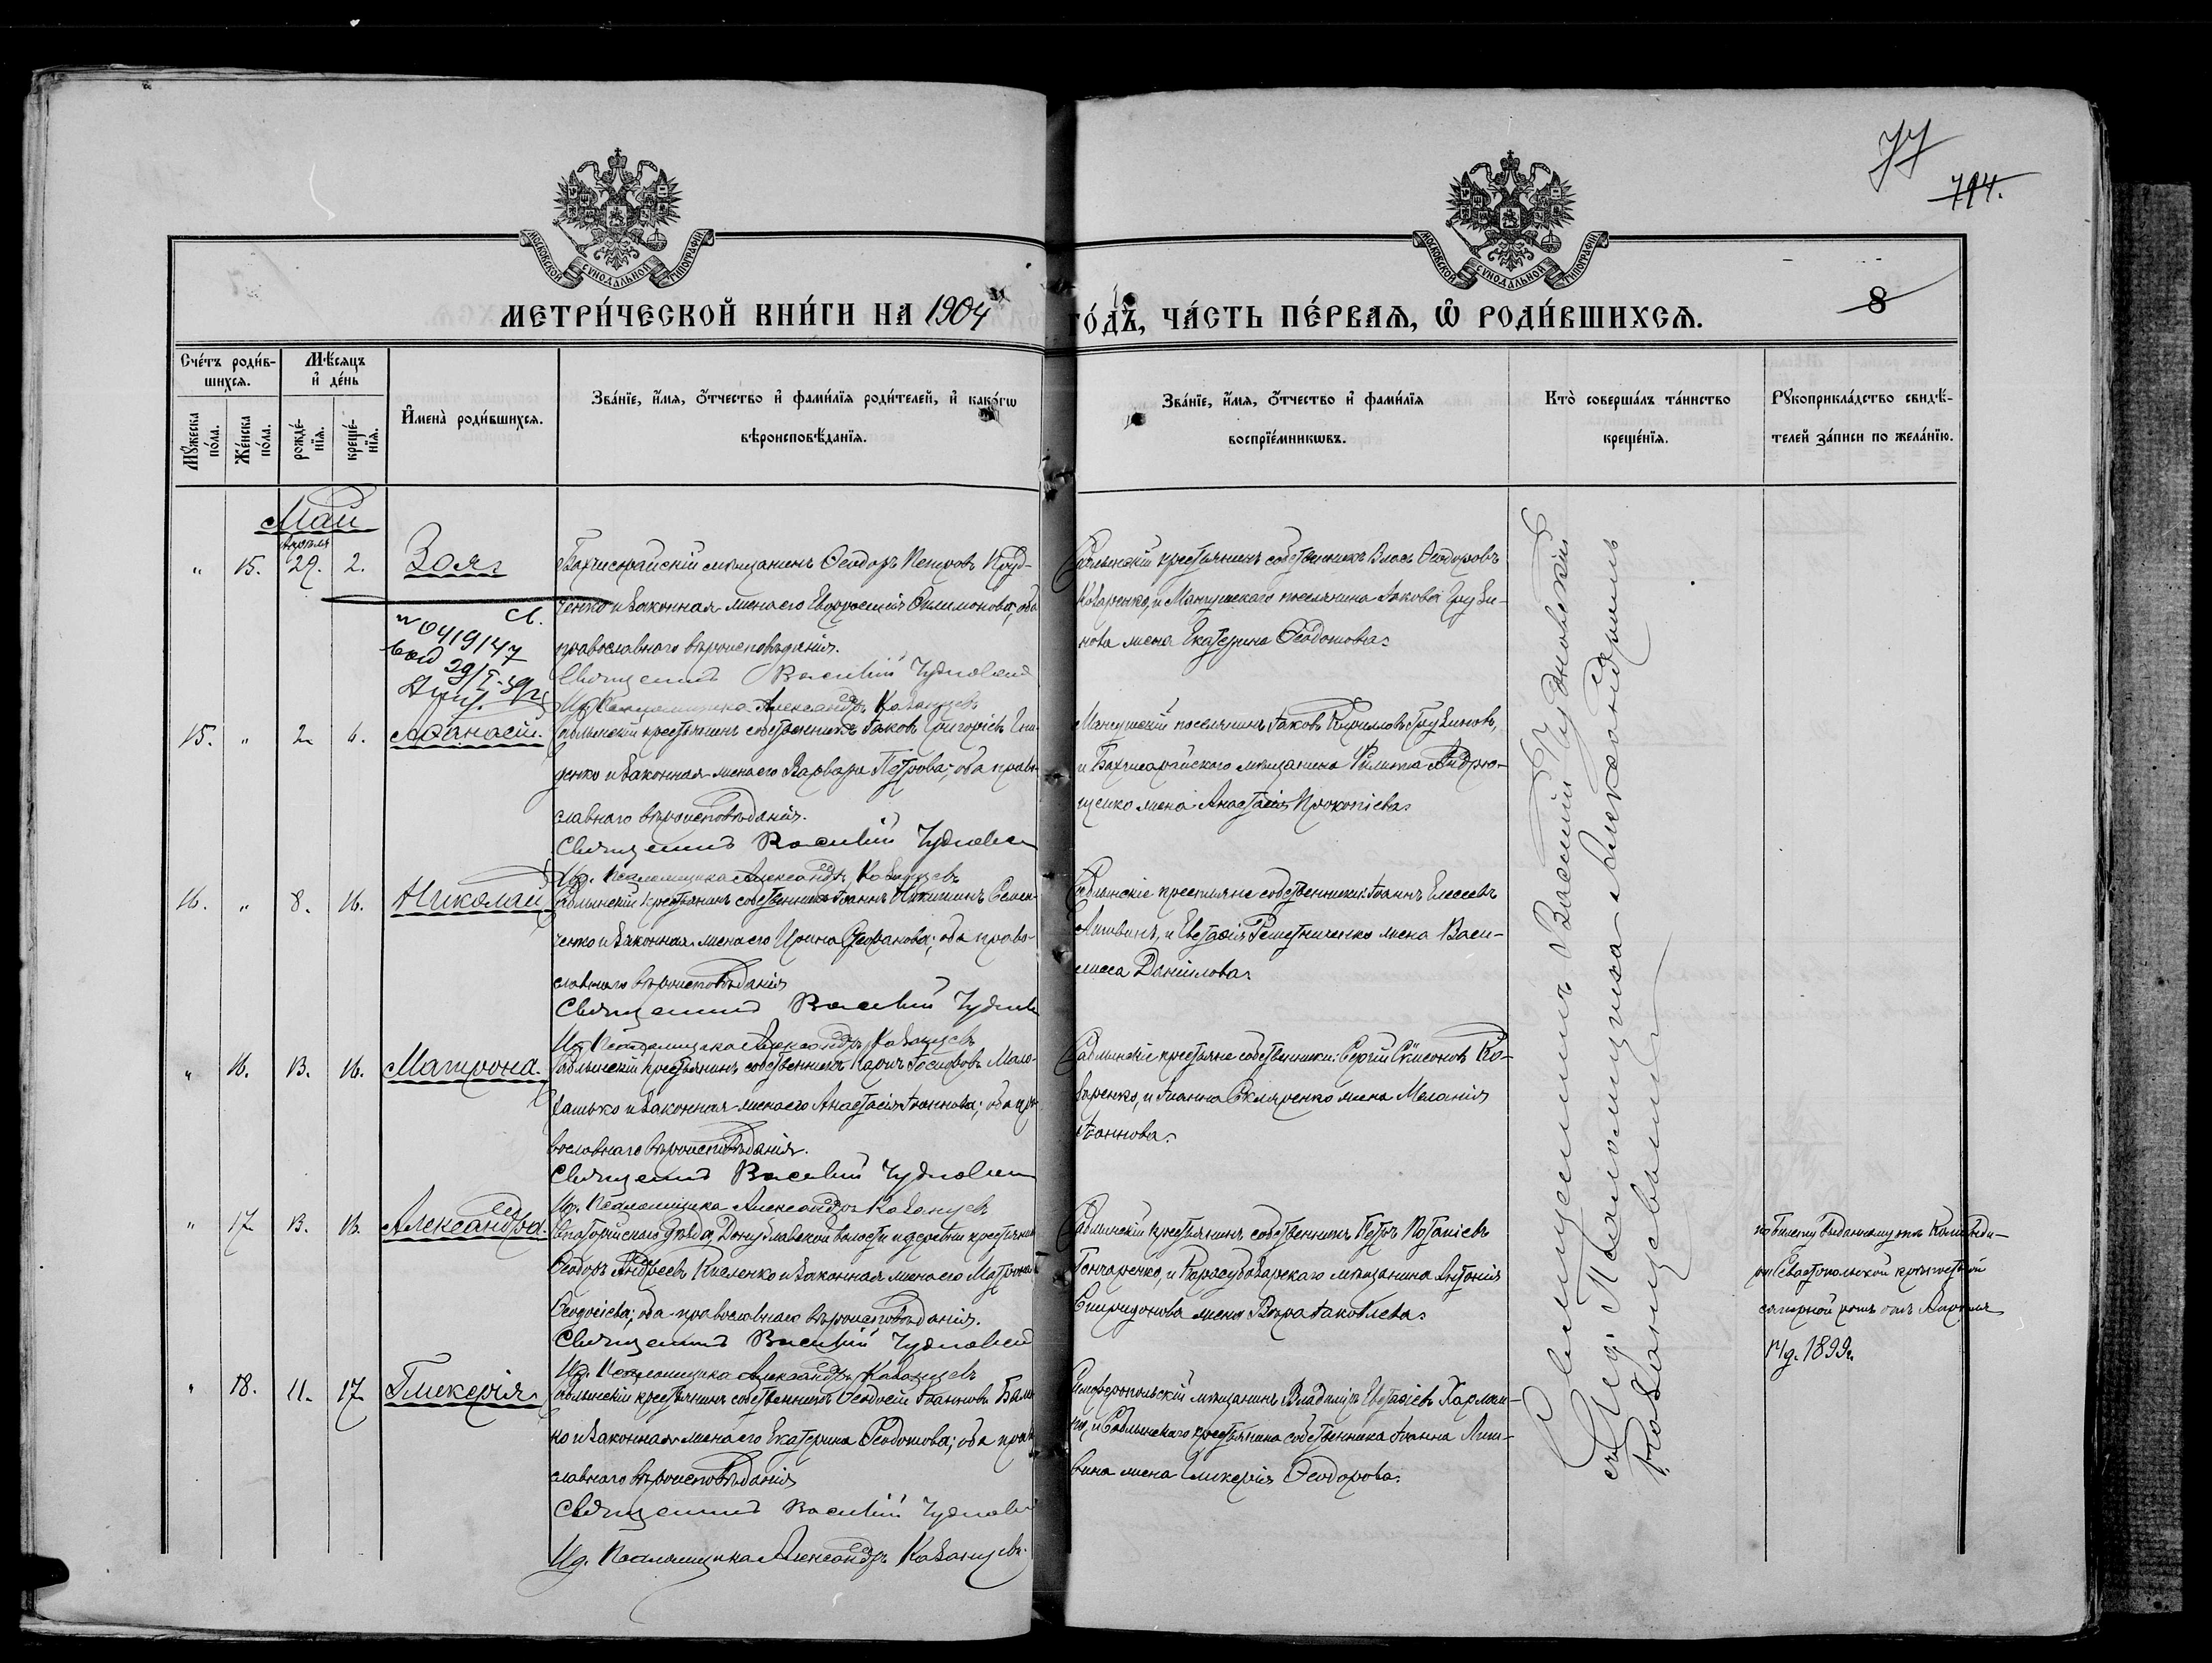 77
794.
МОСКОВСКОЙ СѴНОДАЛЬНОЙ ТИПОГРАФІИ
МОСКОВСКОЙ СѴНОДАЛЬНОЙ ТИПОГРАФІИ
МЕТРИ́ЧЕСКОЙ КНИ́ГИ НА 1904
ГО́ДЪ, ЧА́СТЬ ПЕ́РВАѦ, Ѽ РОДИ́ВШИХСѦ.
8
Сче́тъ роди́в-
шихсѧ.
Мѣ́сѧцъ
и҆ де́нь
Мꙋ́жеска по́ла.
Же́нска по́ла.
рожде́-
нїѧ.
креще́-
нїѧ.
И҆мена̀ роди́вшихсѧ.
Зва́нїе, и҆́мѧ, ѻ҆́тчество и҆ фами́лїѧ роди́телей, и҆ како́гѡ
вѣроисповѣ́данїѧ.
Зва́нїе, и҆́мѧ, ѻ҆́тчество и҆ фами́лїѧ
воспрїе́мникѡвъ.
Кто̀ соверша́лъ та́инство
креще́нїѧ.
Рꙋкоприкла́дство свидѣ́-
телей за́писи по жела́нїю.
Май
Апрѣля
" 15. 29. 2. Зоя
Бахчисарайскій мѣщанинъ Ѳеодоръ Петровъ Пруд-
ченко и законная жена его Евфросинія Филимонова; оба
православнаго вѣроисповѣданія.
Священникъ Василій Чудновскій
И.д. Псаломщика Александръ Казанцевъ
Саблынскій крестьянинъ собственникъ Власъ Ѳеодоровъ
Коваренко, и Мангушскаго поселянина Іакова Грузи-
нова жена Екатерина Ѳеодотова.
св.
№ 0419147
29/I-39 г.
15. " 2. 6. Аѳанасій.
Саблынскій крестьянинъ собственникъ Іаковъ Григорьевъ
денко и законная жена его Варвара Петрова; оба право-
славнаго вѣроисповѣданія.
Священникъ Василій Чудновскій
И.д. Псаломщика Александръ Казанцевъ
Мангушскій поселянинъ Іаковъ Кирилловъ Грузиновъ,
и Бахчисарайскаго мѣщанина Филиппа Андрю-
щенко жена Анастасія Прокопіева.
16. " 8. 16. Николай
Саблынскій крестьянинъ собственникъ Іоаннъ Никитинъ Семен-
ченко и законная жена его Ирина Стефанова; оба право-
славнаго вѣроисповѣданія
Священникъ Василій Чудновскій
И.д. Псаломщика Александръ Казанцевъ
Саблынскіе крестьяне собственники: Іоаннъ Елисеевъ
Литвинъ, и Евстафія Решетниченко жена Васи-
лисса Даніилова.
" 16. 13. 16. Матрона.
Саблынскій крестьянинъ собственникъ Карпъ Іосифовъ Мало-
штанько и законная жена его Анастасія Іоаннова; оба пра-
вославнаго вѣроисповѣданія.
Священникъ Василій Чудновскій
И.д. Псаломщика Александръ Казанцевъ
Саблынскіе крестьяне собственники: Сергій Симеоновъ Ко-
варенко, и Іоанна Скляренко жена Меланія
Іоаннова.
" 17. 13. 16. Александра.
Евпаторійскаго уѣзда, Донузлавской волости и деревни крестьянинъ
Ѳеодоръ Андреевъ Киеленко и законная жена его Матрона
Ѳеодосіева; оба православнаго вѣроисповѣданія.
Священникъ Василій Чудновскій
И.д. Псаломщика Александръ Казанцевъ
Саблынскій крестьянинъ собственникъ Петръ Потапіевъ
Гончаренко, и Карасубазарскаго мѣщанина Антонія
Спиридонова жена Вѣра Іаковлева.
по билету выданному отъ Команди-
ра Севастопольской крѣпостной
саперной роты отъ Апрѣля
14 д. 1899 г.
" 18. 11. 17. Гликерія
Саблынскій крестьянинъ собственникъ Ѳеодосій Іоанновъ Бала-
но и законная жена его Екатерина Ѳеодотова; оба право-
славнаго вѣроисповѣданія
Священникъ Василій Чудновскій
И.д. Псаломщика Александръ Казанцевъ.
Симферопольскій мѣщанинъ Владиміръ Евстафіевъ Харлам-
по, и Саблынскаго крестьянина собственника Іоанна Лит-
вина жена Гликерія Ѳеодорова.
Священникъ Василій Чудновскій
съ И.д. Псаломщика Александромъ
Казанцевымъ